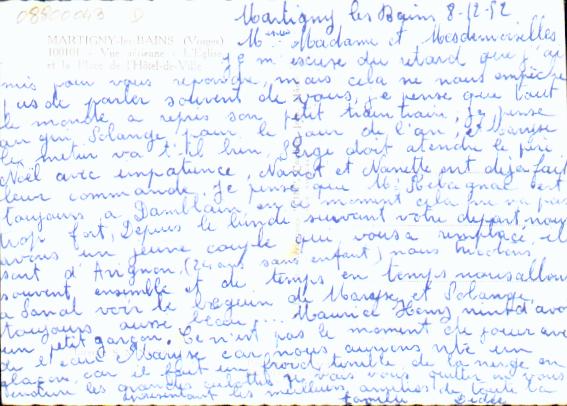 08800043 D
Martigny les Bains 8-12-82
MARTIGNY-les-BAINS (Vosges)
100101 - Vue aérienne - L'Eglise
et la Place de l'Hôtel-de-Ville
Madame et Mesdemoiselles
Je m'escuse du retard que j'ai
mis pour vous repondre, mais cela ne nous empêche
pas de parler souvent de vous, je pense que tout
le monde a repris son petit traintrain, je pense
au gui Solange pour le jour de l'an, et Maryse
va t'il bien, Serge doit atendre le père
Noël avec empatience, et Nanette ont déja fait
leur commande. Je pense que Mr est
toujours a Damblain, en ce moment cela ne va pas
trop fort, Depuis le lundi suivant votre départ, nous
avons un jeune couple qui vous a remplacé, il
sort d'Avignon, (24 ans sans enfant) nous
souvent ensemble et de temps en temps nous allons
voir le béguin de Maryse et Solange,
toujours aussi beau... Maurice
un petit garçon. Ce n'est pas le moment de jouer avec
de l'eau Maryse car nous aurions vite un
glaçon, car il fait un froid terrible de la neige en
les grandes culottes, je vais vous quitter en vous
présentant les meilleurs amitiés de toute la
famille Didée